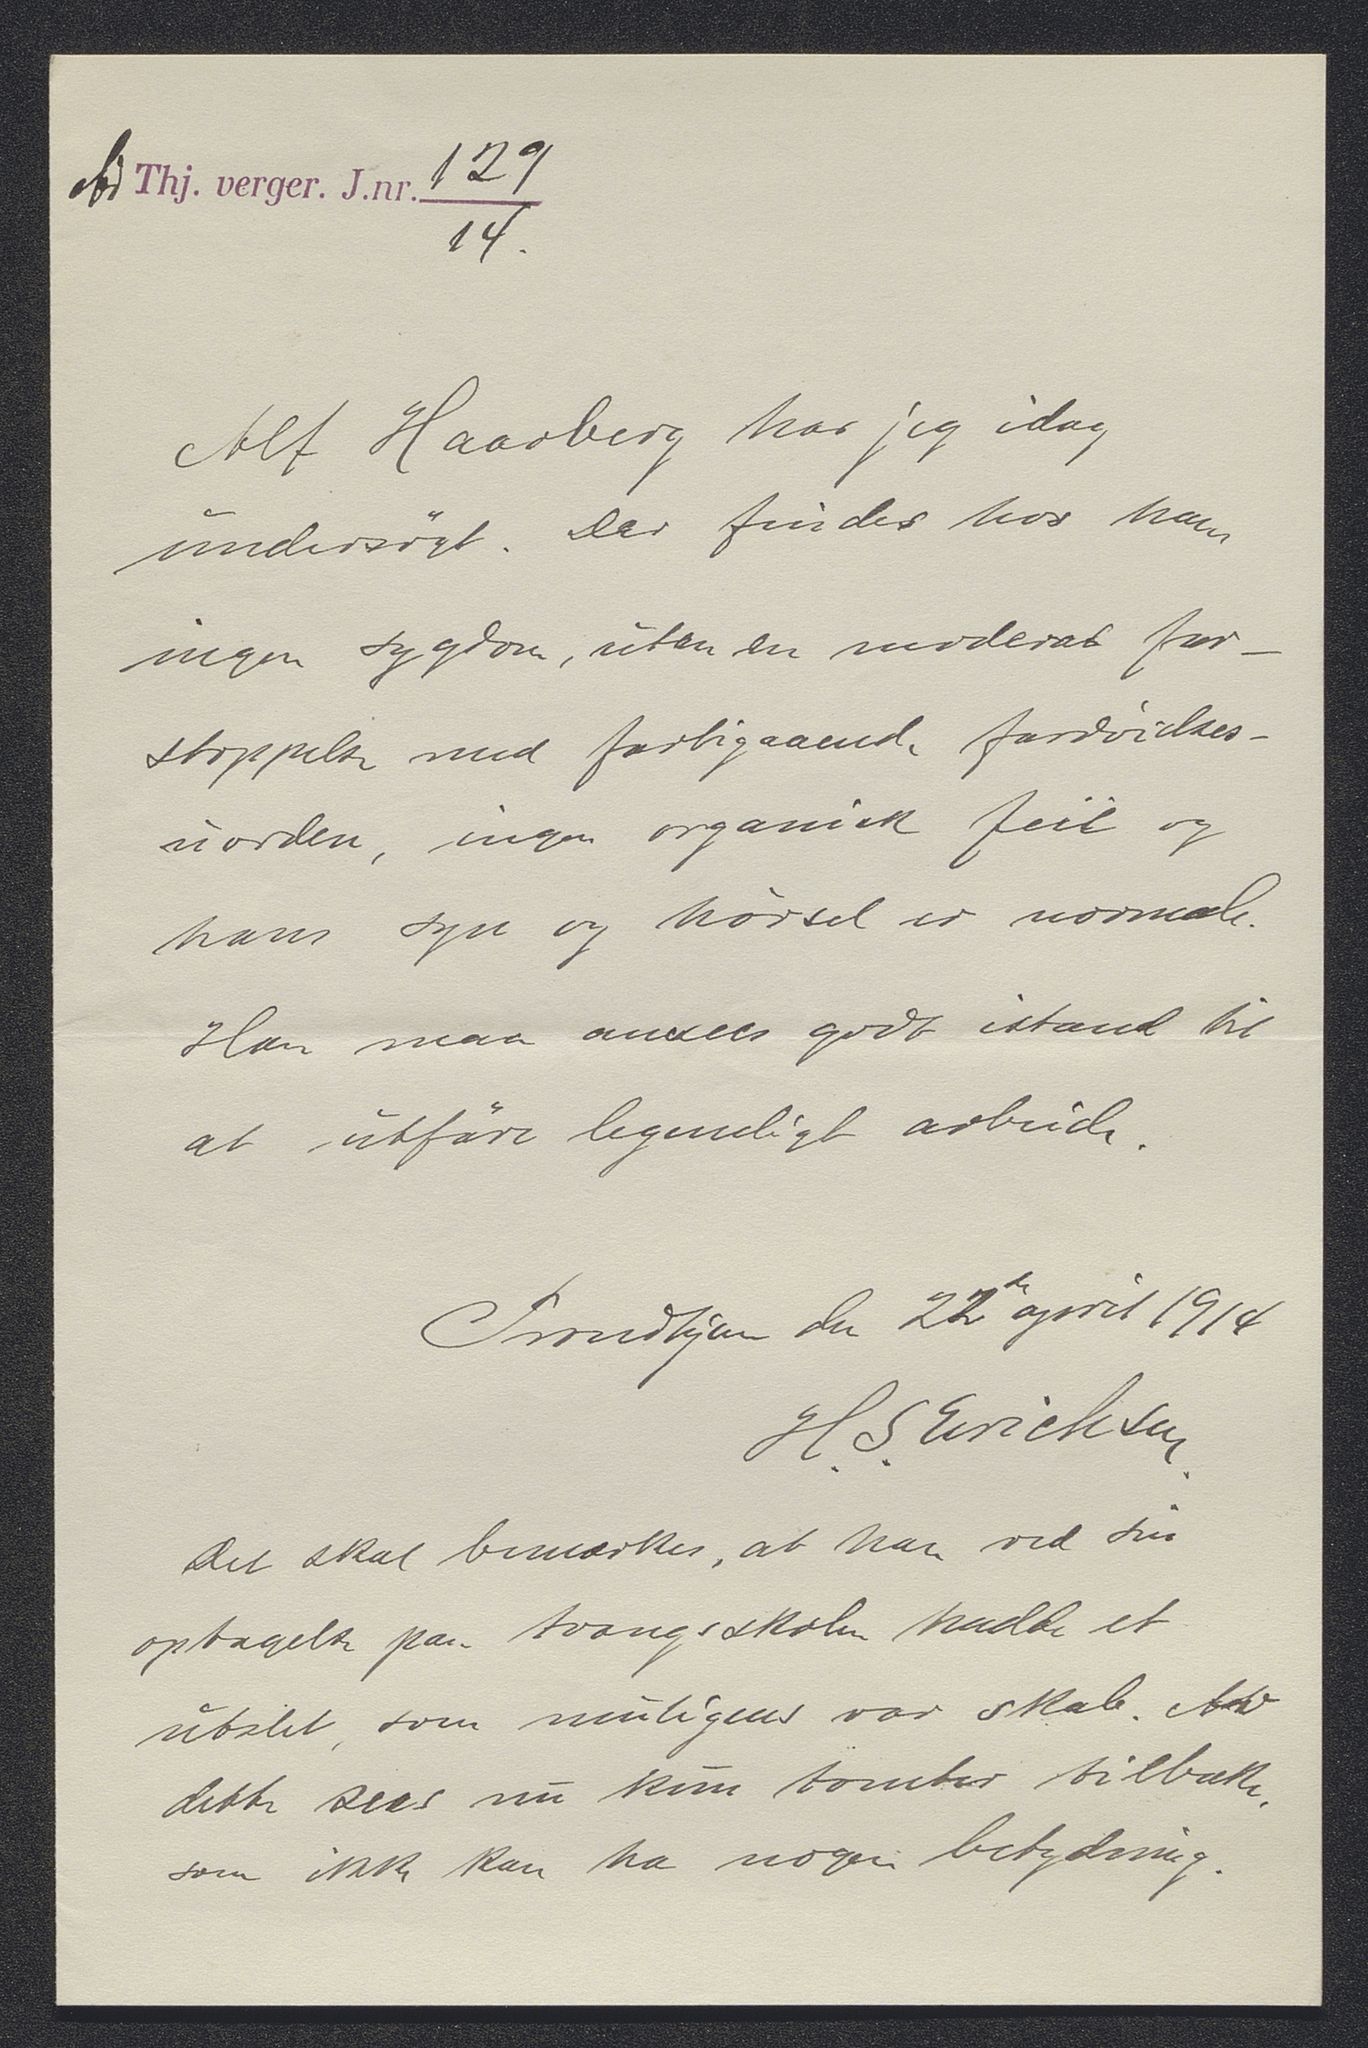 Thj. verger. J.nr. 129
14.
Alf Haarberg har jeg idag
undersögt. Der findes hos ham
ingen sygdom, uten en moderat for-
stoppelse med forbigaaende fordöielses-
uorden, ingen organisk feil og
hans syn og hörsel er normale.
Han maa ansees godt istand til
at utföre legemeligt arbeide.
Trondhjem den 22de april 1914
H. S. Erichsen.
Det skal bemærkes, at han ved sin
optagelse paa tvangsskolen hadde et
utslet, som muligens var skab. Av
dette sees nu kun tomter tilbake,
som ikke kan ha nogen betydning.